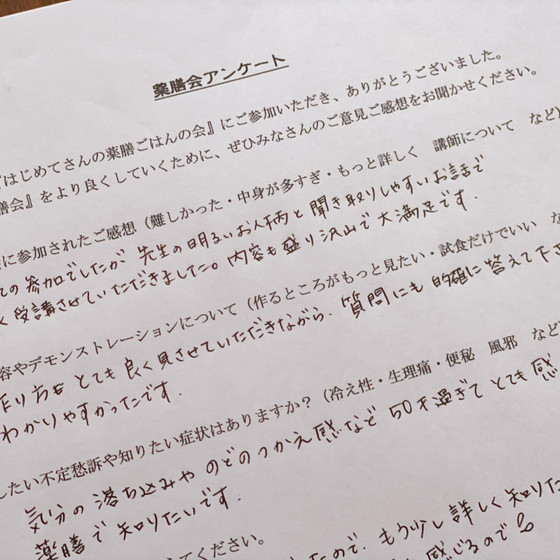 薬膳会アンケート
はじめてさんの薬膳ごはんの会』にご参加いただき、ありがとうございました。
膳会』をより良くしていくために、ぜひみなさんのご意見ご感想をお聞かせください。
に参加されたご感想（難しかった・中身が多すぎ・もっと詳しく　講師について　など）
ての参加でしたが 先生の明るいお人柄と 聞き取りしやすいお話で
く受講させていただきました。内容も盛り沢山で大満足です。
容やデモンストレーションについて（作るところがもっと見たい・試食だけでいい　な
作り方も とても良く見させていただきながら、質問にも 的確に答えて下さ
わかりやすかったです。
したい不定愁訴や知りたい症状はありますか？（冷え性・生理痛・便秘　風邪　など
気分の落ち込みや のどのつかえ感など 50才過ぎて とても感
薬膳で知りたいです。
てください。
たので、もう少し詳しく知りた
感じるので